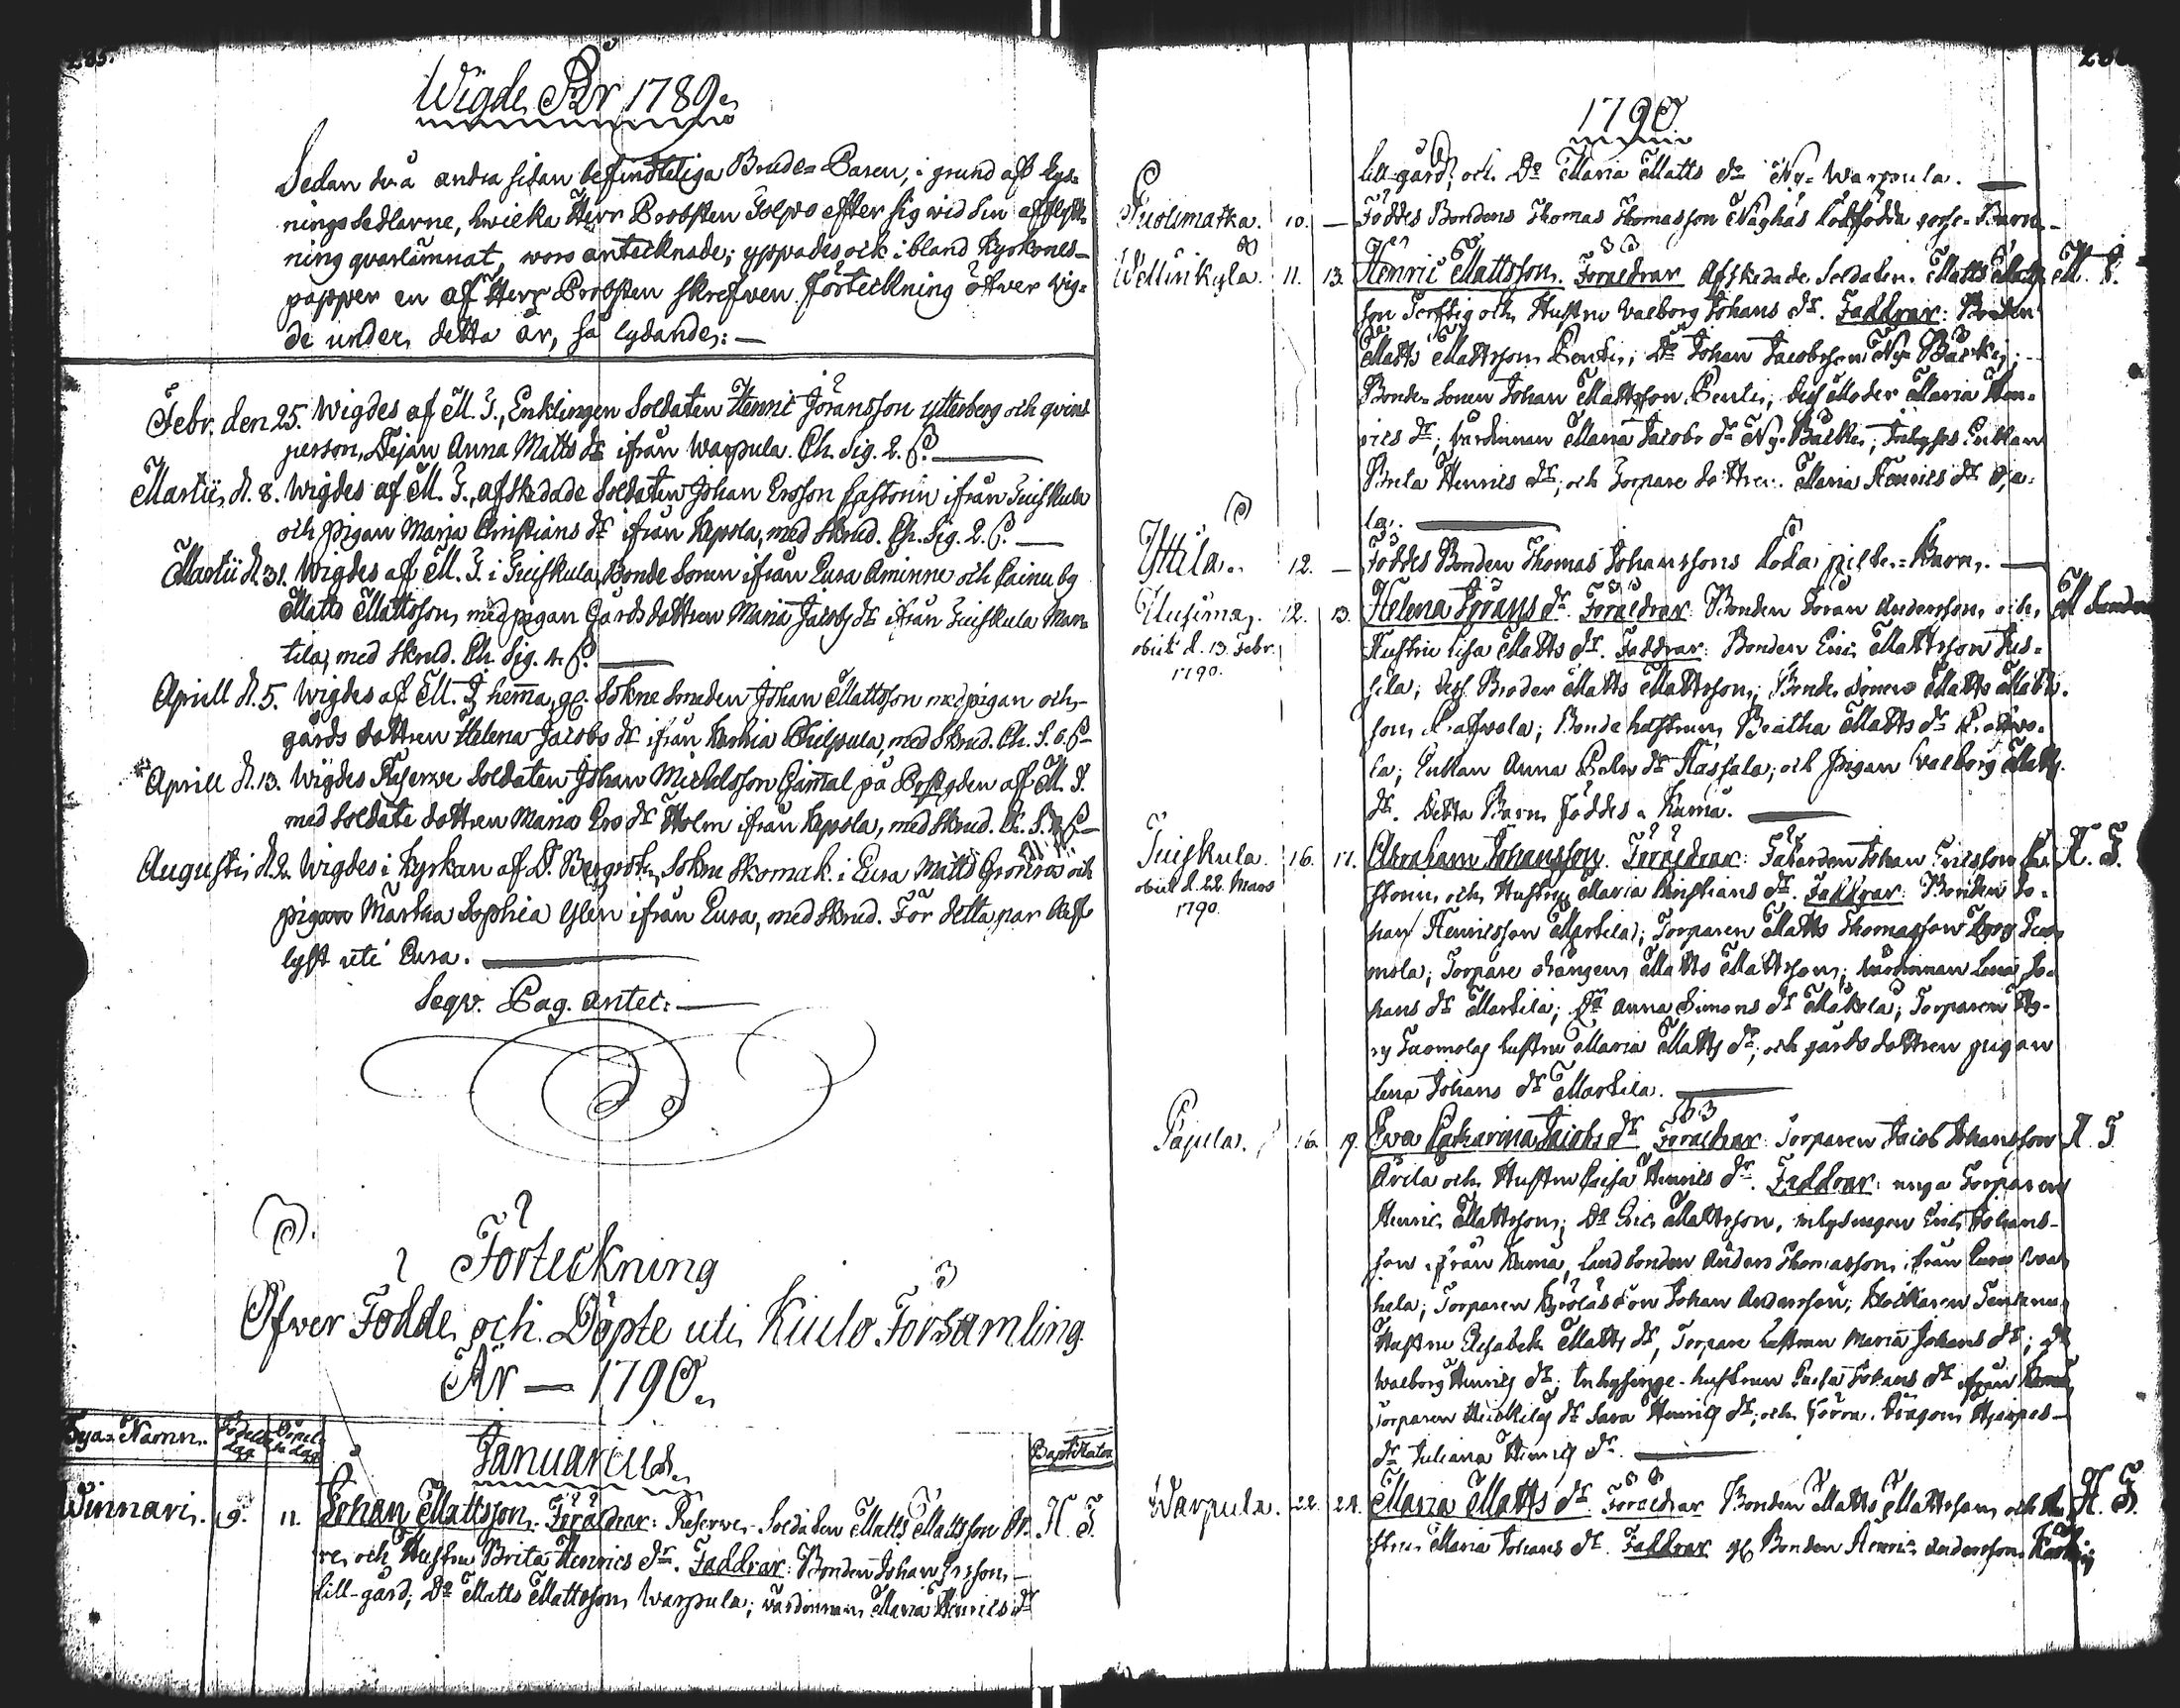 Wigde År 1789.
Sedan de å andra sidan befindteliga Brude-Paren, i grund af Lys-
nings Sedlarne, hwilka Herr Probsten Polviander efter sig wid sin afflytt-
ning qvarlämnat, woro antecknade; yppades ock ibland Kyrkones
papper en af Herr Probsten skrefwen förteckning öfver wig-
de under detta år, så lydande: —
Febr. den 25. Wigdes af M. I., Enklingen Soldaten Henric Göransson Ytterberg och qvins
person, Anna Matts dr ifrån Warpula. Ch. Sig. 2. ß.
Martii d. 8. Wigdes af M. I., afskedade Soldaten Johan Ersson Faston ifrån Tuiskula
och pigan Maria Christians dr ifrån Kepola, med Skrud. Ch. Sig. 2. ß.
Martii d. 31. Wigdes af M. I. i Tuiskula, Bonde Sonen ifrån Eura Aminne och Kainu by
Matts Mattsson, med pigan Gårds dottren Maria Jacobs dr ifrån Tuiskula Man-
tila, med Skrud. Ch. Sig. 4. ß.
Aprill d. 5. Wigdes af M. I. hemma, gl. Sokne Smeden Johan Mattsson med pigan och
gårds dottren Helena Jacobs dr ifrån Karhia Phillpula, med Skrud. Ch. S. 6. ß
Aprill d. 13. Wigdes Reserve Soldaten Johan Michelsson Gammal på Prostgden af M. I.
med Soldate dottren Maria Ers dr Holm ifrån Kepola, med Skrud. Ch. S. ß
Augusti d. 2. Wigdes i Kyrkan af D. Bergroth, Sokne Skomak. i Eura Matts Grönroos och
pigan Martha Sophia Ylen ifrån Eura, med Skrud. För detta par Aest
lyst uti Eura.
Seqv. Pag. antec:
Förteckning
Öfwer Födde och Döpte uti Kiulo Församling
År — 1790.
Bya-Namn. Födelse dag Döpelse dag Januarius. Baptisator
Winnari. 9. 11. Johan Mattsson. Föraldrar: Reserve-Soldaten Matts Mattsson Or- H. I.
re, och Hustru Brita Henrics dr. Faddrar: Bonden Johan Ersson
Lill-gård; Do Matts Mattsson Warpula; wärdinnan Maria Henrics dr
1790
Lill-gård, och Do Maria Matts dr Ny-Warpula.
Puolimatka. 10. — Föddes Bondens Thomas Thomasson Näyhäs dödfödda gosse-Barn.
Wellinkyla. 11. 13. Henric Mattsson. Föraldrar Afskedade Soldaten Matts Matts- M. I.
son Torftig och Hustru Walborg Johans dr. Faddrar: Bonden
Matts Mattsson Penti; Do Johan Jacobsson Ny-Bäcki;
Bonde-Sonen Johan Mattsson Penti; dess Moder Maria Hen-
rics dr; wärdinnan Maria Jacobs dr Ny-Bäcki; Inhyses Enkan
Brita Henrics dr; och Torpare dottren Maria Henrics dr Oja-
la.
Yttila. 12. — Föddes Bonden Thomas Johanssons döda pilte-Barn.
Uusima. 12. 13. Helena Görans dr. Föraldrar Bonden Göran Andersson, och M
obiit d. 13. Febr. Hustru Lisa Matts dr. Faddrar: Bonden Eric Mattsson Jus-
1790. sila; dess Broder Matts Mattsson; Bonde sonen Matts Matts-
son; Bonde hustrun Beatha Matts dr
la; Enkan Anna dr Hassala; och pigan Walborg Matts
dr. Detta Barn föddes i Kumo.
Tuiskula. 16. 17. Abraham Johansson. Föraldrar: Johan Ericsson Fa- H. I.
obiit d. 22. Mars ston, och Hustru Maria Christians dr. Faddrar: Bonden Jo-
1790. han Henricsson Markila; Torparen Matts Thomasson Tuo-
mola; Torpare drängen Matts Mattsson; wärdinnan Lena Jo-
hans dr Markila; Do Anna Simons dr Mäkelä; Torparens
Tuomolas hustru Maria Matts dr; och gårds dottren pigan
Lena Johans dr Markila.
Papula. 16. 17. Eva Catharina Jacobs dr. Föraldrar: Torparen Jacob Johansson H. I.
Arila och Hustru Caisa Henrics dr. Faddrar: unga Torparen
Henric Mattsson; Do Eric Mattsson, inhysingen Eric Johans-
son ifrån Kumo, Landbonden Anders Thomasson ifrån Eura
hela; Torparen Johan Andersson; Klockaren
Hustru Elisabeth Matts dr, Torpare hustrun Maria Johans dr; Do
Walborg Henrics dr; Inhysinge-hustrun Caisa Johans dr ifrån Kumo
Torparen dr Sara Henrics dr; och förra Dragon
dr Juliana Henrics dr.
Warpula. 22. 24. Maria Matts dr. Föraldrar Bonden Matts Mattsson och Hu- H. I.
stru Maria Johans dr. Faddrar gl Bonden Henric Andersson